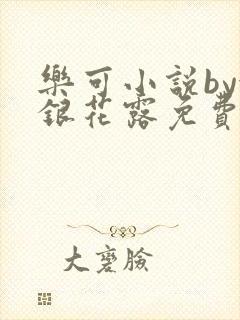 樂可小說by
銀花露免費
大蹇臉